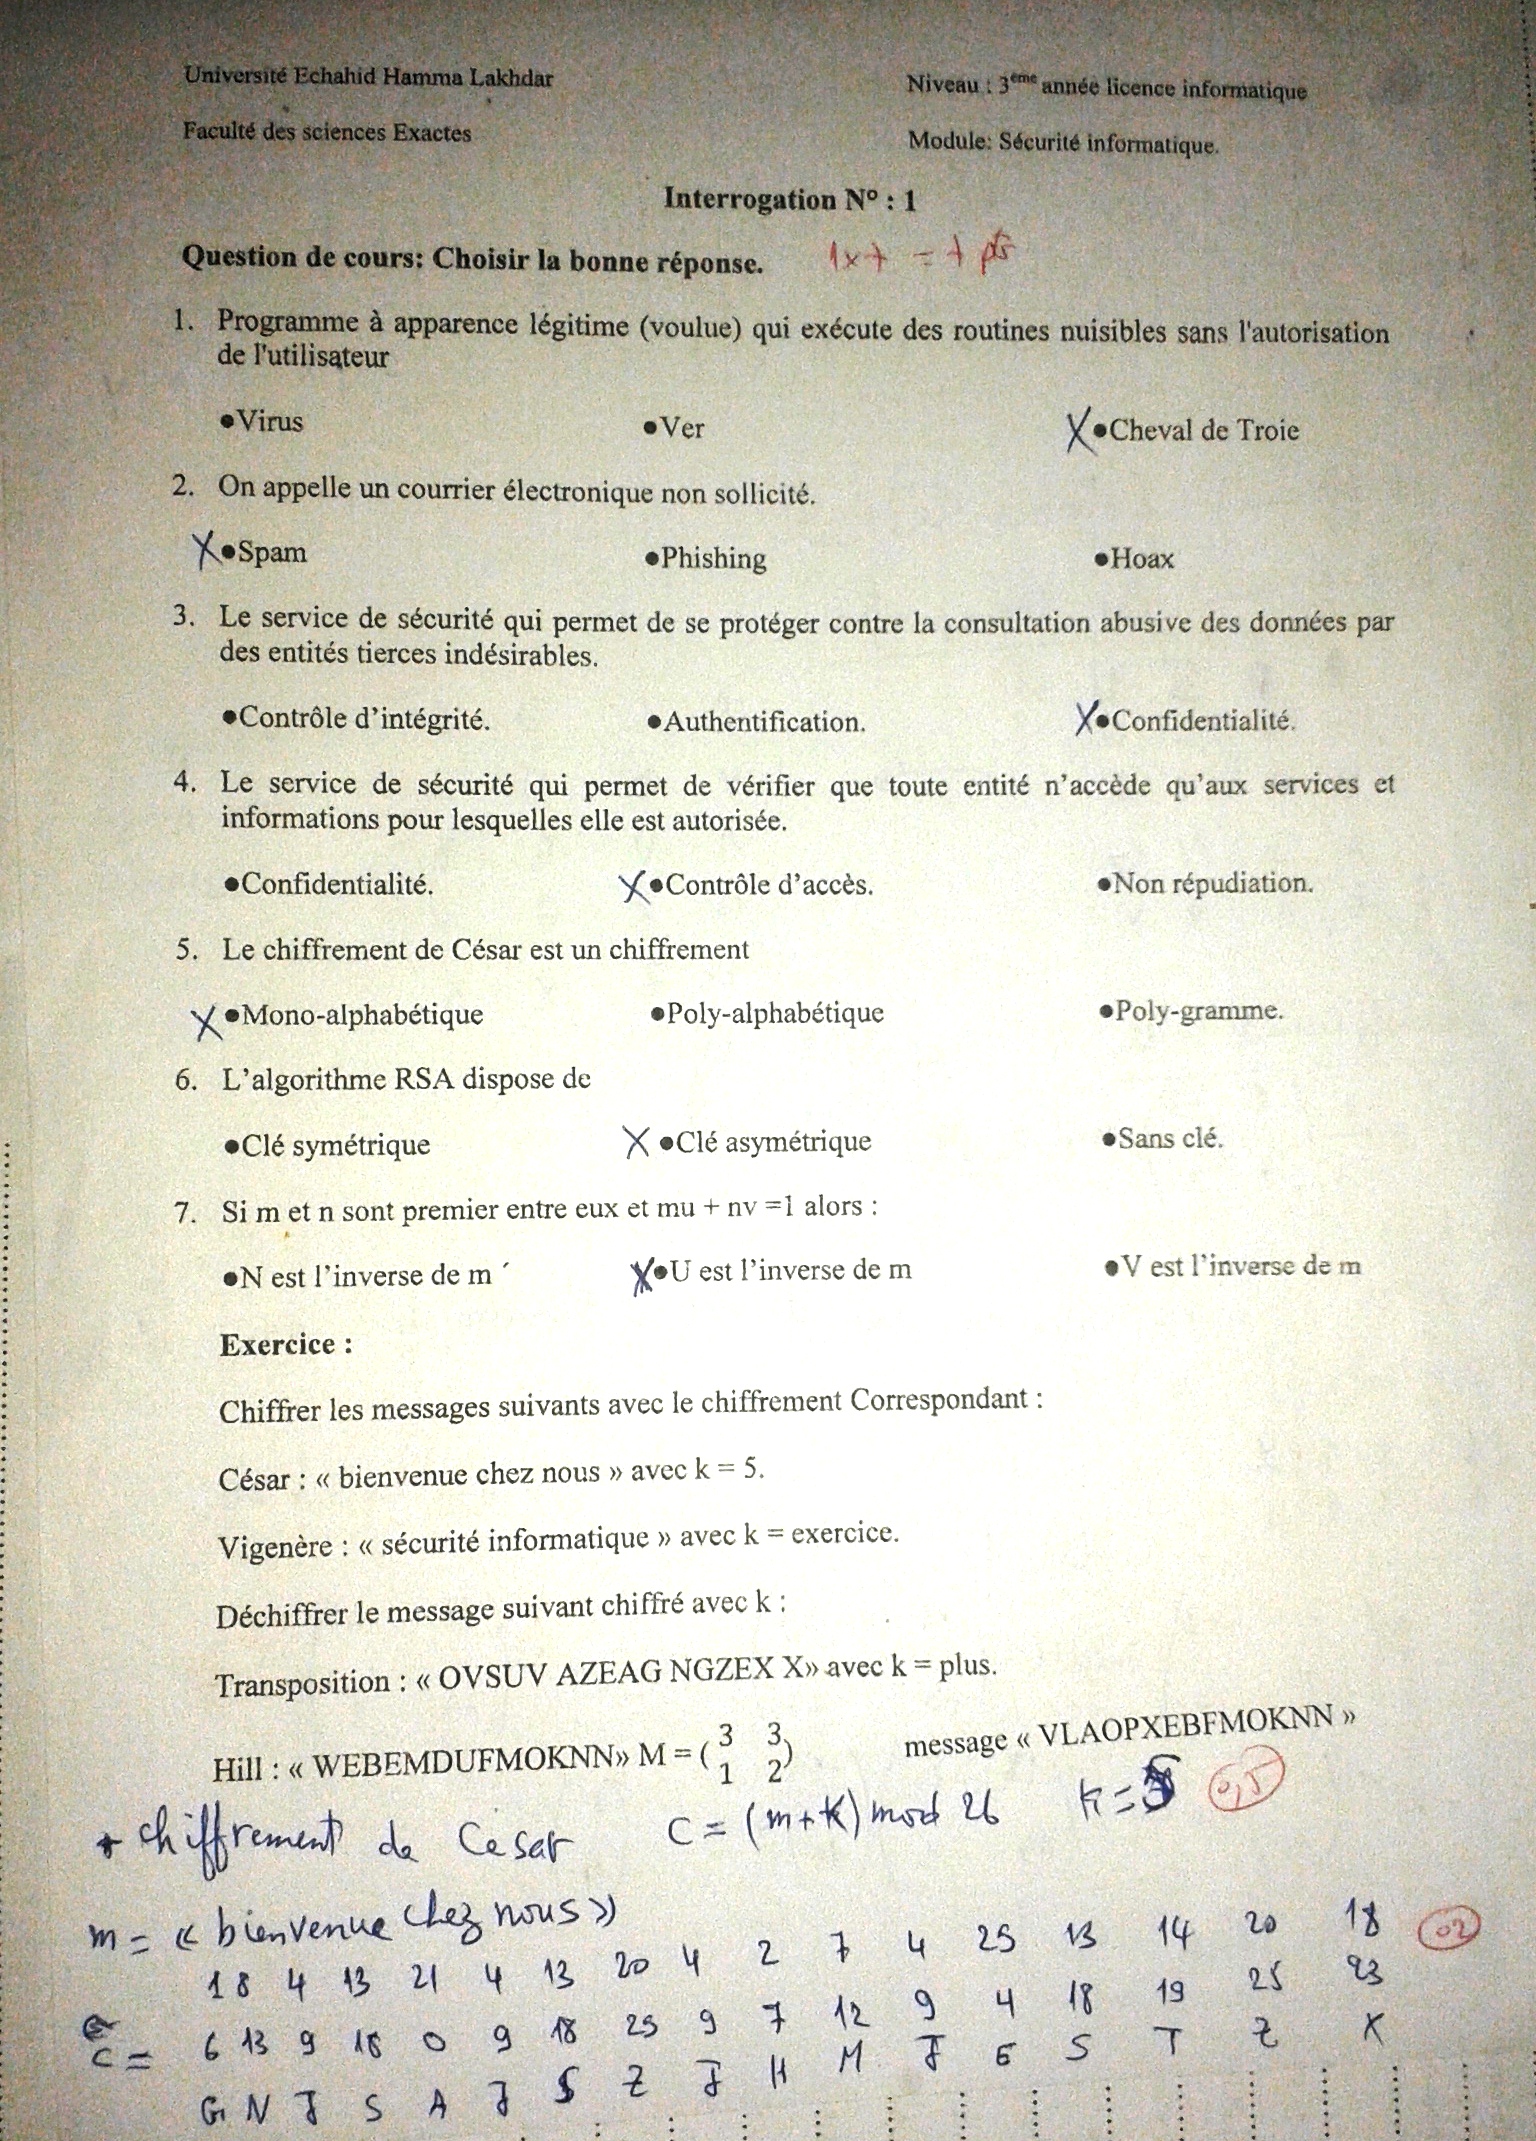 Université Echahid Hamma Lakhdar
Niveau : 3ème année licence informatique
Faculté des sciences Exactes
Module: Sécurité informatique.
Interrogation N° : 1
Question de cours: Choisir la bonne réponse. 1x7 = 7 pts
1. Programme à apparence légitime (voulue) qui exécute des routines nuisibles sans l'autorisation
de l'utilisateur
●Virus ●Ver X●Cheval de Troie
2. On appelle un courrier électronique non sollicité.
X●Spam ●Phishing ●Hoax
3. Le service de sécurité qui permet de se protéger contre la consultation abusive des données par
des entités tierces indésirables.
●Contrôle d'intégrité. ●Authentification. X●Confidentialité.
4. Le service de sécurité qui permet de vérifier que toute entité n'accède qu'aux services et
informations pour lesquelles elle est autorisée.
●Confidentialité. X●Contrôle d'accès. ●Non répudiation.
5. Le chiffrement de César est un chiffrement
X●Mono-alphabétique ●Poly-alphabétique ●Poly-gramme.
6. L'algorithme RSA dispose de
●Clé symétrique X ●Clé asymétrique ●Sans clé.
7. Si m et n sont premier entre eux et mu + nv =1 alors :
●N est l'inverse de m X●U est l'inverse de m ●V est l'inverse de m
Exercice :
Chiffrer les messages suivants avec le chiffrement Correspondant :
César : « bienvenue chez nous » avec k = 5.
Vigenère : « sécurité informatique » avec k = exercice.
Déchiffrer le message suivant chiffré avec k :
Transposition : « OVSUV AZEAG NGZEX X» avec k = plus.
Hill : « WEBEMDUFMOKNN» M = ( 3 3 1 2 ) message « VLAOPXEBFMOKNN »
+ chiffrement de Cesar C = (m+k) mod 26 k = 5 0,5
m = « bienvenue chez nous »
1 8 4 13 21 4 13 20 4 2 7 4 25 13 14 20 18 02
C = 6 13 9 18 0 9 18 25 9 7 12 9 4 18 19 25 23
G N J S A J S Z J H M J E S T Z X